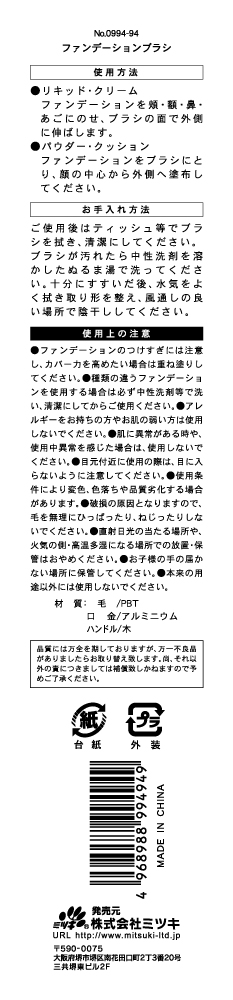 No.0994-94
ファンデーションブラシ
使用方法
●リキッド・クリーム
ファンデーションを頬・額・鼻・
あごにのせ、ブラシの面で外側
に伸ばします。
●パウダー・クッション
ファンデーションをブラシにと
り、顔の中心から外側へ塗布し
てください。
お手入れ方法
ご使用後はティッシュ等でブラ
シを拭き、清潔にしてください。
ブラシが汚れたら中性洗剤を溶
かしたぬるま湯で洗ってくださ
い。十分にすすいだ後、水気をよ
く拭き取り形を整え、風通しの良
い場所で陰干ししてください。
使用上の注意
●ファンデーションのつけすぎには注意
し、カバー力を高めたい場合は重ね塗りし
てください。●種類の違うファンデーショ
ンを使用する場合は必ず中性洗剤等で洗
い、清潔にしてからご使用ください。●アレ
ルギーをお持ちの方やお肌の弱い方は使用
しないでください。●肌に異常がある時や、
使用中異常を感じた場合は、使用しないで
ください。●目元付近に使用の際は、目に入
らないように注意してください。●使用条
件により変色、色落ちや品質劣化する場合
があります。●破損の原因となりますので、
毛を無理にひっぱったり、ねじったりしな
いでください。●直射日光の当たる場所や、
火気の側・高温多湿になる場所での放置・保
管はおやめください。●お子様の手の届か
ない場所に保管してください。●本来の用
途以外には使用しないでください。
材 質： 毛 /PBT
口 金/アルミニウム
ハンドル/木
品質には万全を期しておりますが、万一不良品
がありましたらお取り替え致します。尚、それ以
外の責につきましては補償致しかねますので予
めご了承ください。
紙
台紙
プラ
外装
4 968988 994949
MADE IN CHINA
ミツキ®
発売元
株式会社ミツキ
URL http://www.mitsuki-ltd.jp
〒590-0075
大阪府堺市堺区南花田口町2丁3番20号
三共堺東ビル2F